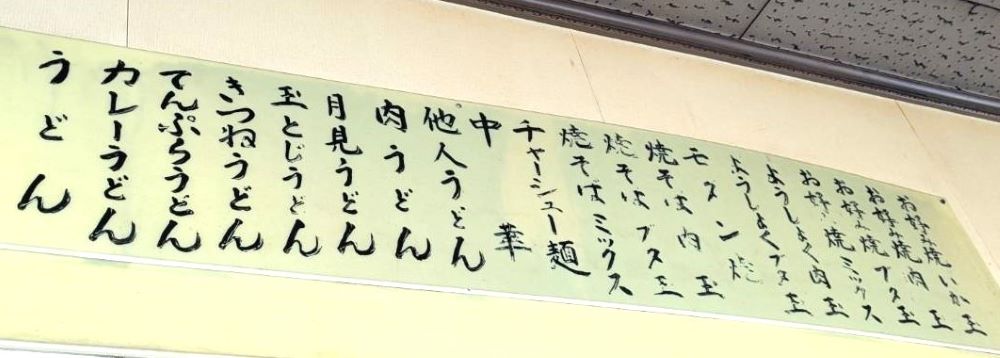 お好み焼いか玉
お好み焼肉玉
お好み焼ブタ玉
お好み焼ミックス
ようしょく肉玉
ようしょくブタ玉
モダン焼
焼そば肉玉
焼そばブタ玉
焼そばミックス
チャーシュー麺
中華
他人うどん
肉うどん
月見うどん
玉とじうどん
きつねうどん
てんぷらうどん
カレーうどん
うどん